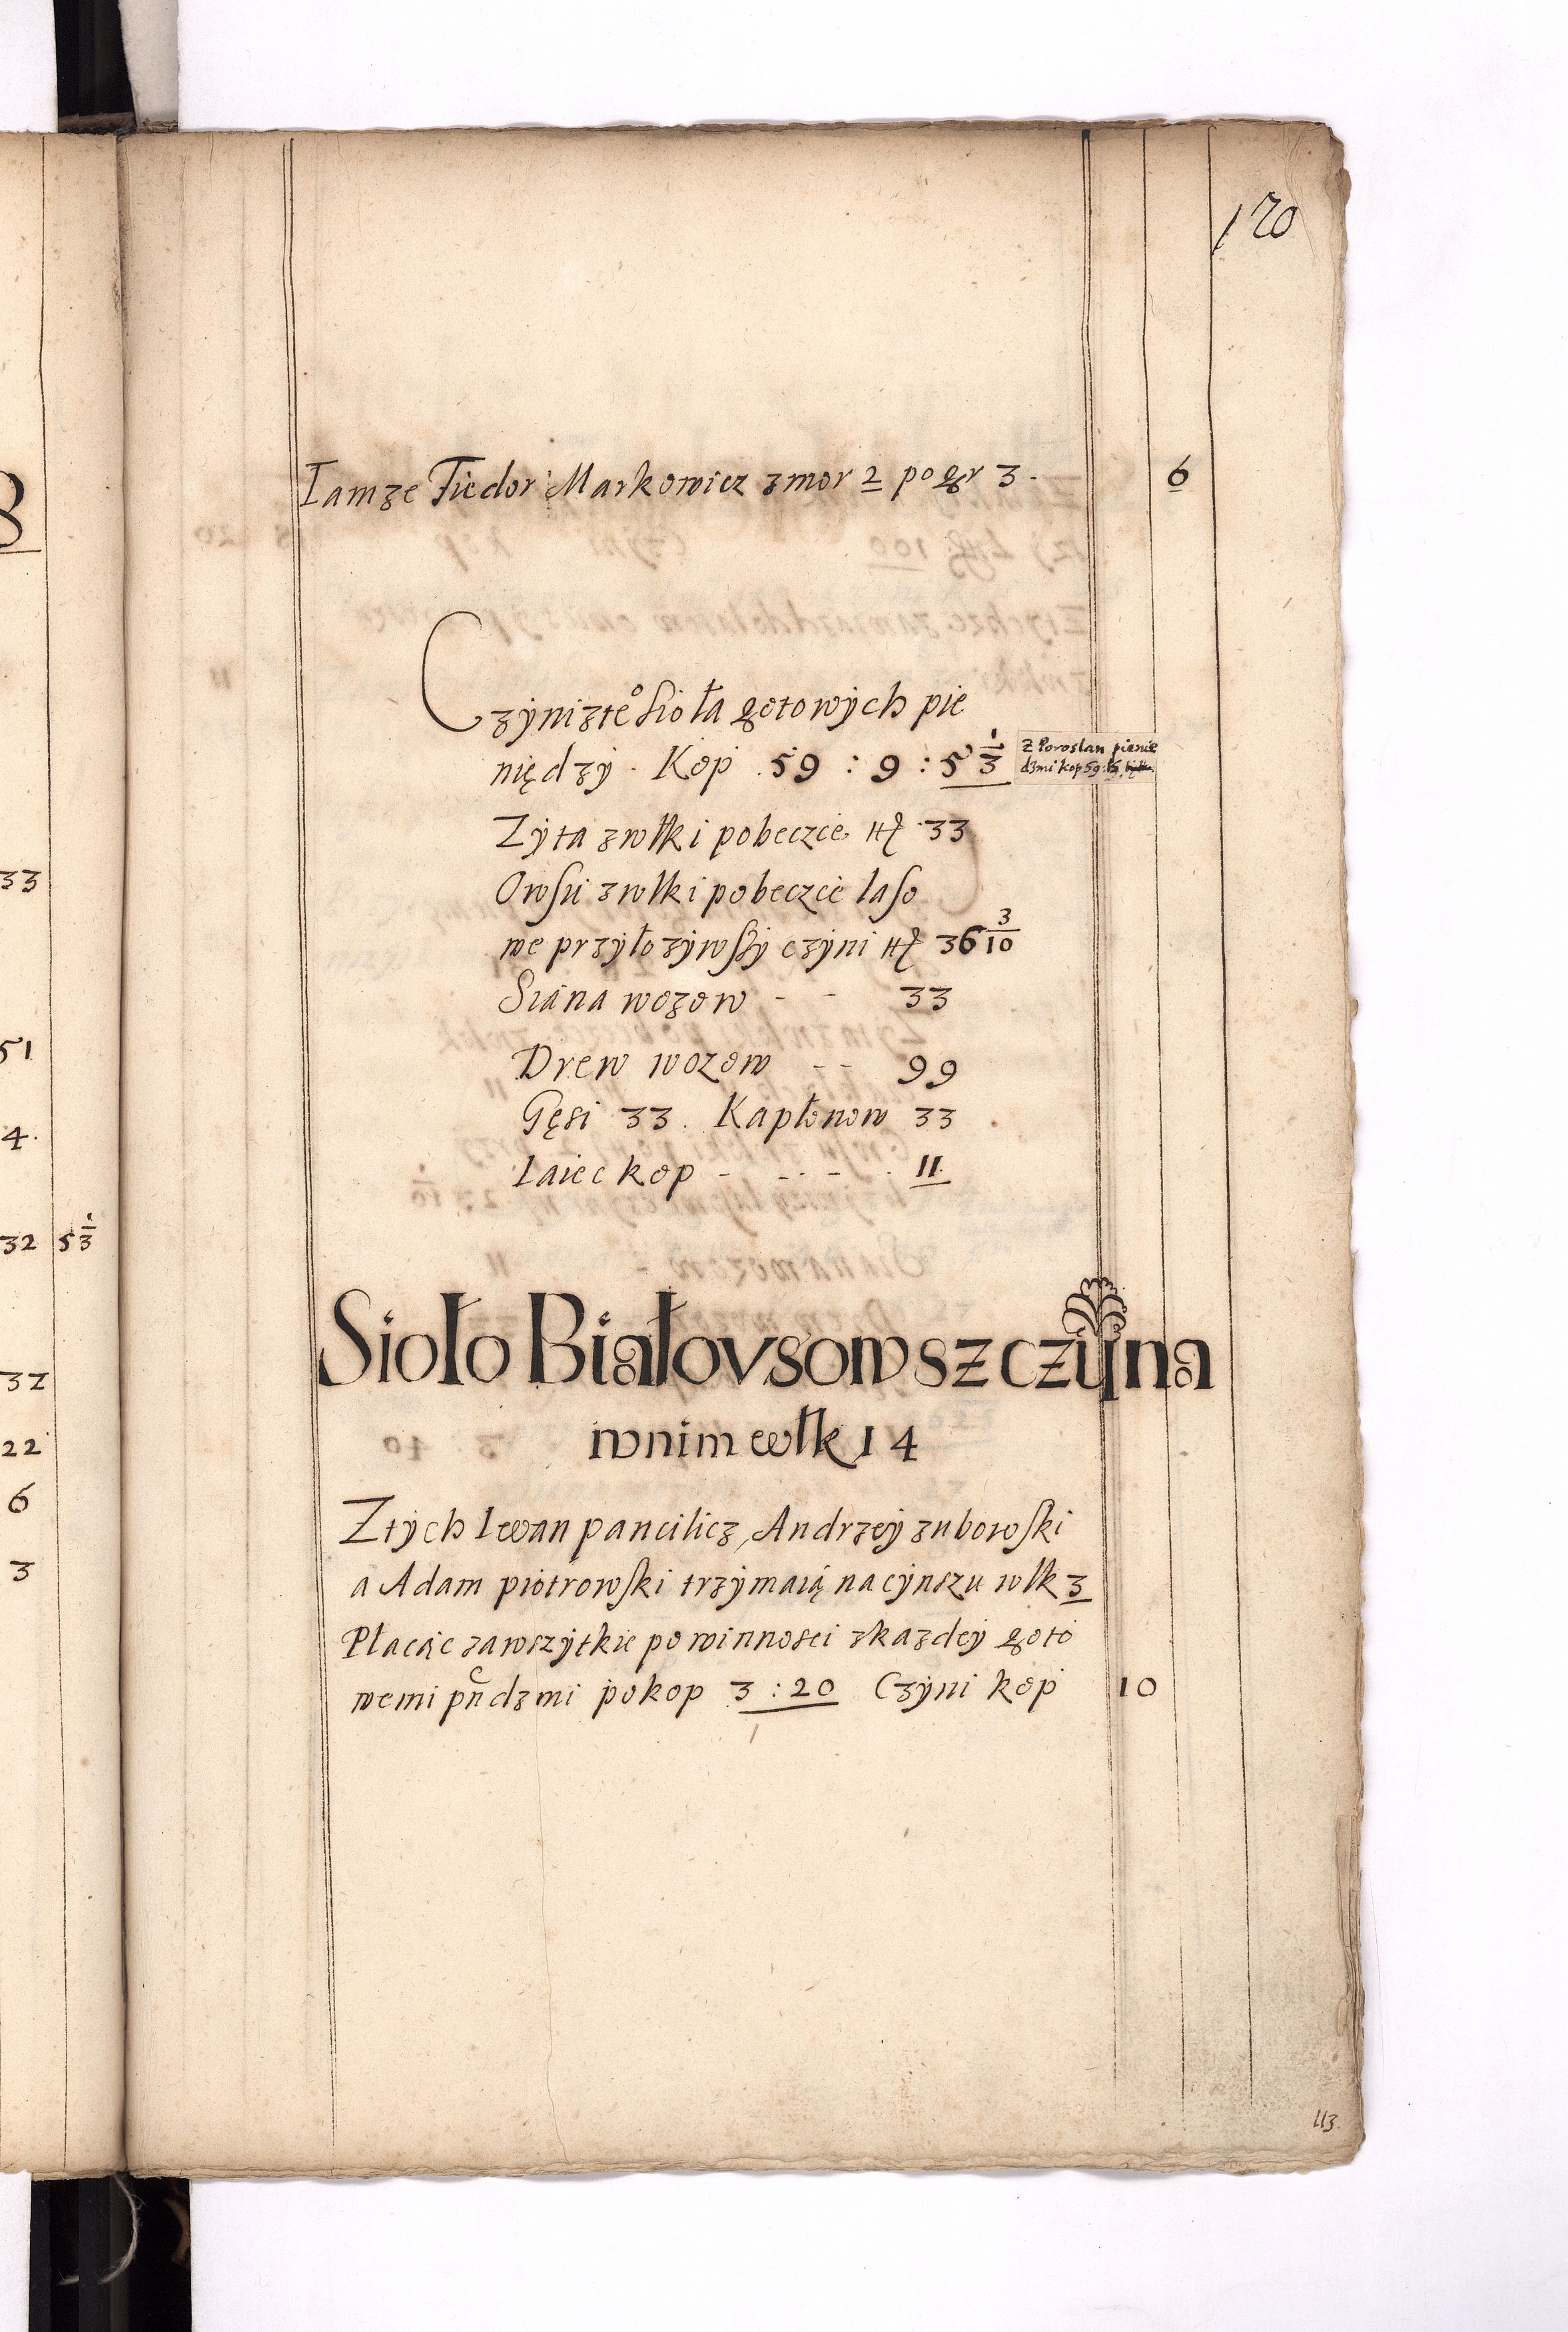 120
Tamże Fiedor Markowicz z mor 2 po gr 3. 6
Czyni z te° Sioła gotowych pie
niędzy. Kop 59 : 9 : 5 1/3
Z Poroslan pienie
dzmi kop 59.
Zyta z włk i po beczcie 33
Owsu z wlk i po beczcie laso
we przyłozywszy czyni 36 3/10
Siana wozow - - 33
Drew wozow - - 99
Gęsi 33. Kapłonow 33
Iaiec kop - - - - 11.
Sioło Białovsowszczyna
w nim włk 14
Z tych Iwan pancilicz, Andrzey zubowski
a Adam piotrowski trzymaią na cynszu wlk 3
Płacąc za wszytkie powinnosci z kazdey goto
wemi pndzmi po kop 3 : 20 Czyni kop 10
113.
33
51
4.
32 5 1/3
37
22
6
3